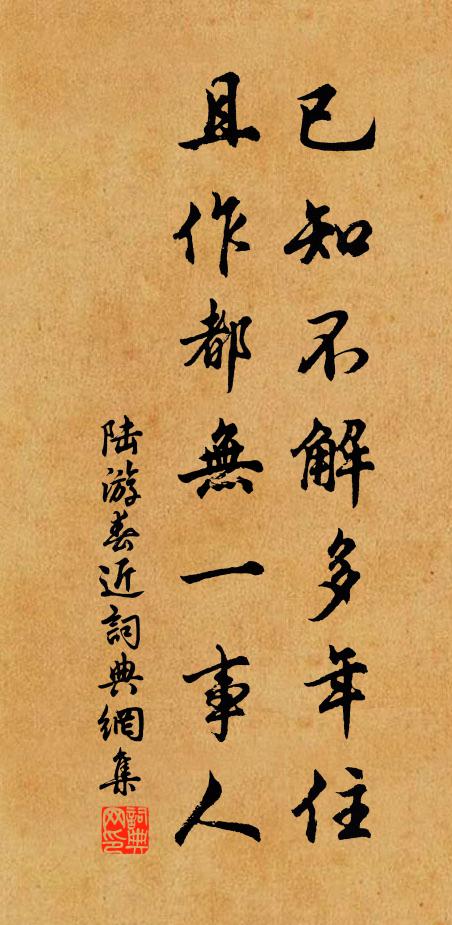 已知不解多年住
且作都無一事人
陆游春近詞典網集
詞典网印